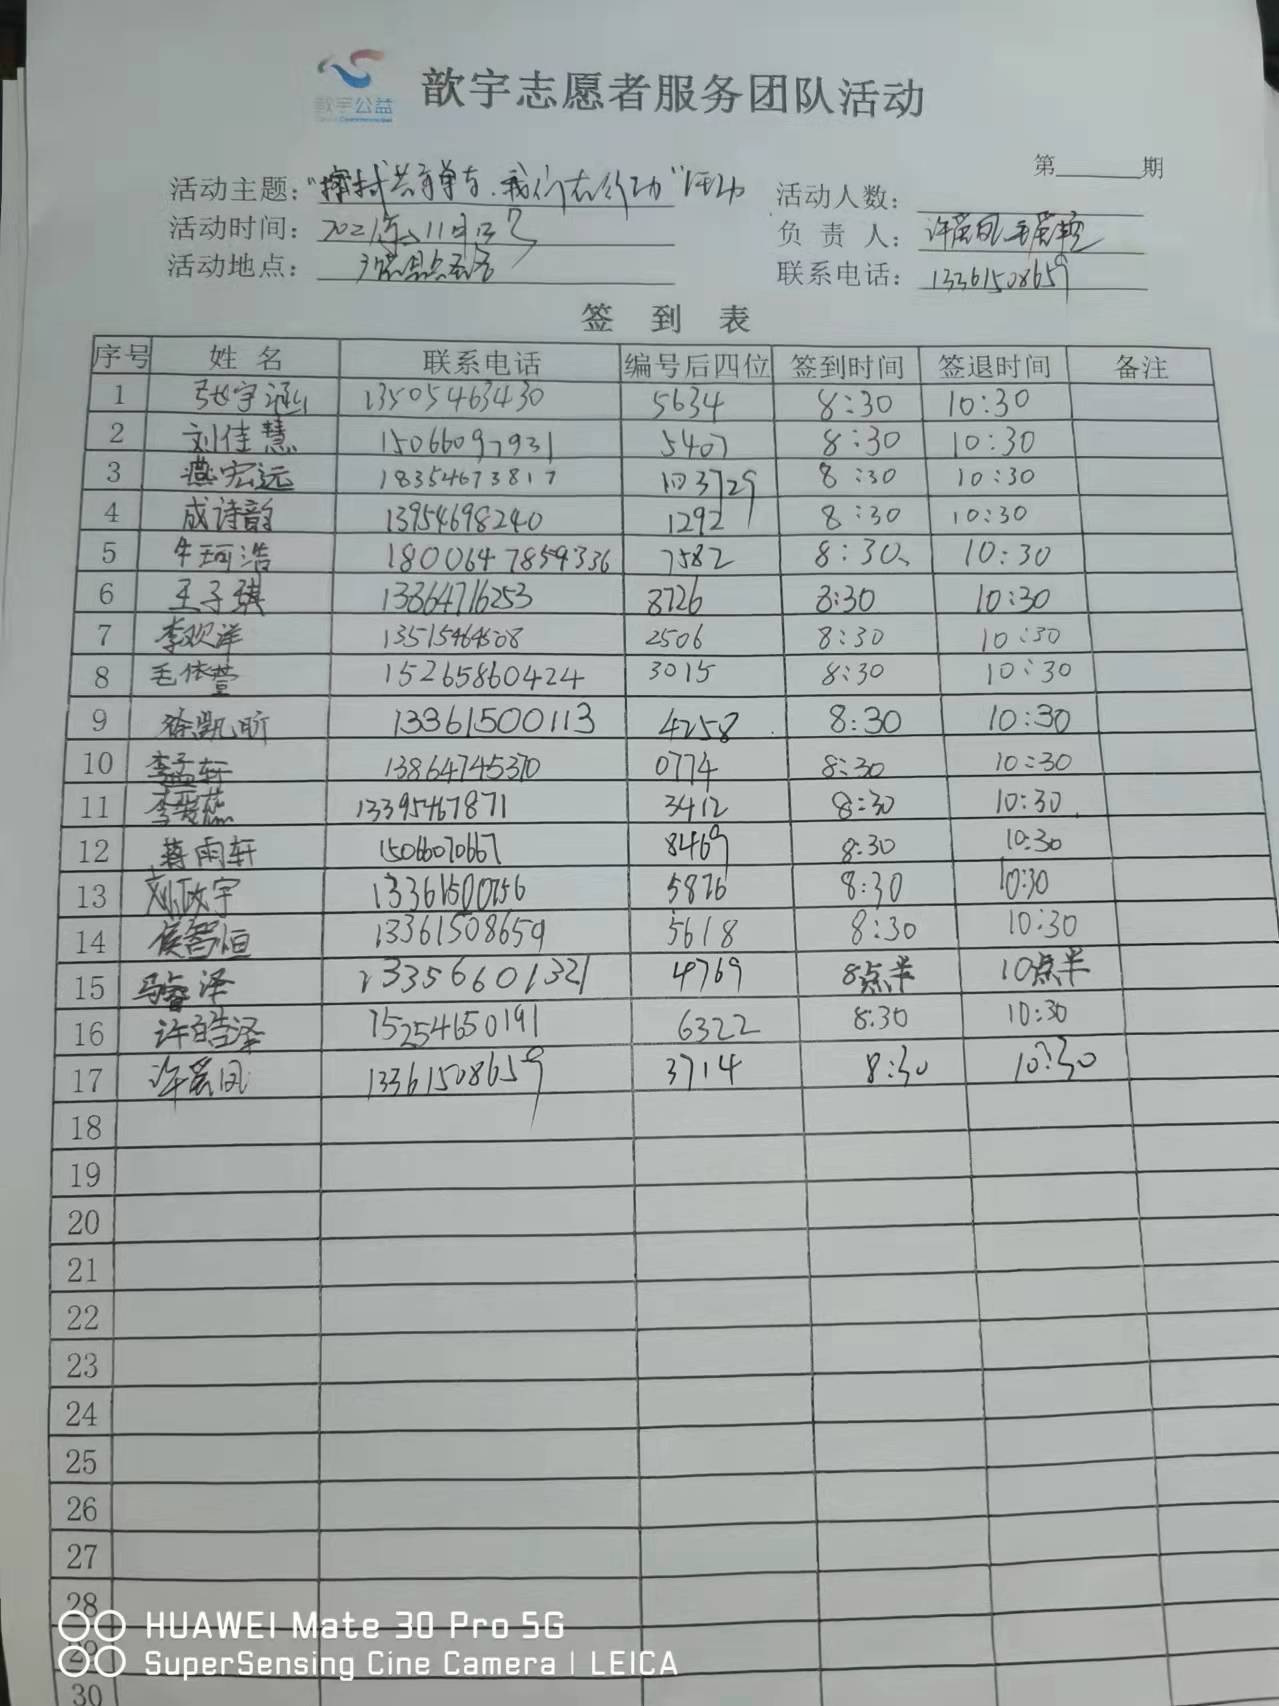 歆宇公益
歆宇志愿者服务团队活动
第 期
活动主题：“擦拭共享单车，我们在行动”活动
活动人数：
活动时间：2021年11月13
负责人：许
活动地点：广饶县
联系电话：13361508659
签 到 表
序号 姓名 联系电话 编号后四位 签到时间 签退时间 备注
1 张宇涵 13505463430 5634 8:30 10:30
2 刘佳慧 15066097931 5407 8:30 10:30
3 燕宏远 18354673817 3729 8:30 10:30
4 成诗韵 13954698240 1292 8:30 10:30
5 牛珂浩 18006478594336 7582 8:30 10:30
6 王子骐 13864716253 8726 8:30 10:30
7 李欢洋 2506 8:30 10:30
8 毛依萱 15265860424 3015 8:30 10:30
9 徐凯昕 13361500113 4258 8:30 10:30
10 李孟轩 13864745370 0774 8:30 10:30
11 李 13395467871 3412 8:30 10:30
12 蒋雨轩 15066070667 8469 8:30 10:30
13 刘政宇 13361500756 5876 8:30 10:30
14 侯智恒 13361508659 5618 8:30 10:30
15 马睿泽 13356601321 4769 8点半 10点半
16 许皓泽 15254650191 6322 8:30 10:30
17 许 13361508659 3714 8:30 10:30
18
19
20
21
22
23
24
25
26
27
28
29
30
HUAWEI Mate 30 Pro 5G
SuperSensing Cine Camera | LEICA